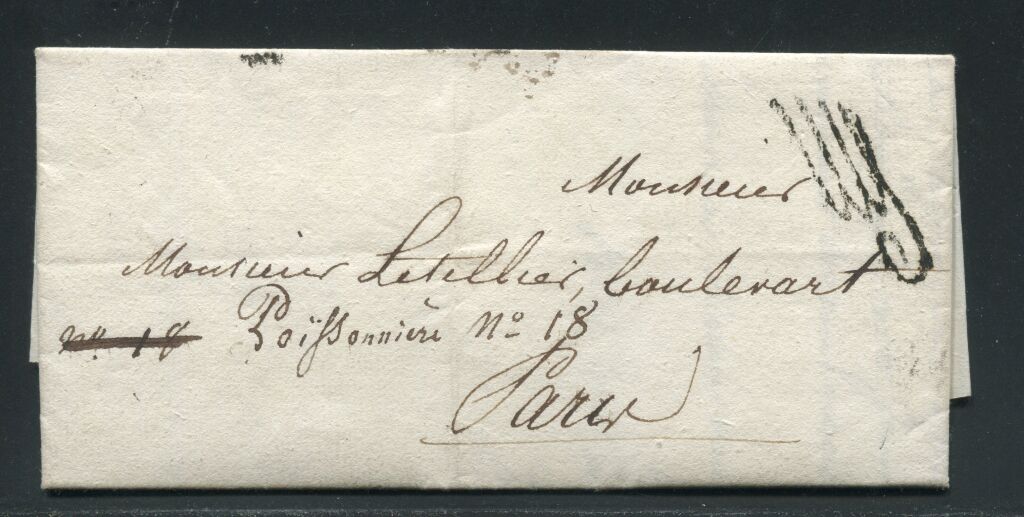 Monsieur
Monsieur Letellier, boulevart
n° 18 Poissonnière N° 18
Paris